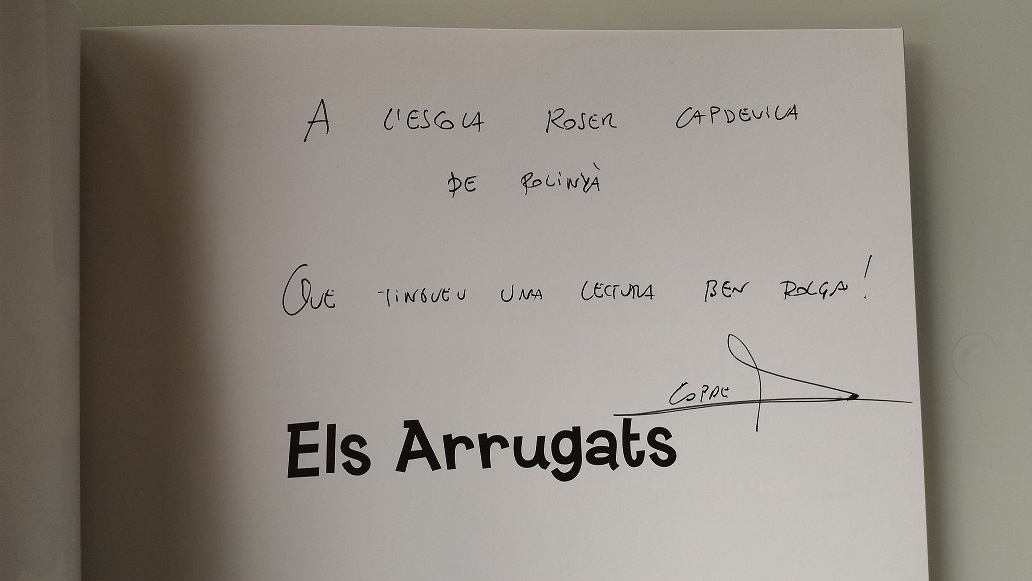 A L'ESCOLA ROSER CAPDEVILA
DE POLINYÀ
QUE TINGUEU UNA LECTURA BEN DOLÇA!
COPDE
Els Arrugats